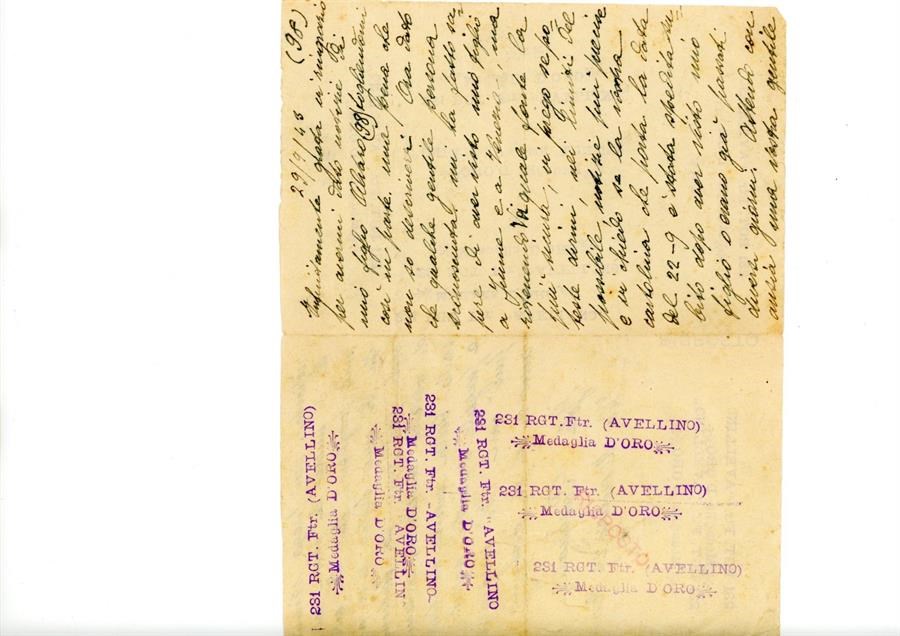 29/9/43 (98)
Infinitamente grata vi ringrazio
per avermi dato notizie di
mio figlio (98) togliendomi
così in parte una pena che
non so descrivervi. Ora dato
che qualche gentile persona
sconosciuta, mi ha fatto sa=
pere di aver visto mio figlio
a Fiume e a Venezia, ma
ritenendo Vi quale fonte la
più sicura, vi prego se po=
teste darmi, nei limiti del
possibile, notizie più precise
e vi chiedo se la stessa
cartolina che porta la data
del 22-9 è stata spedita su=
bito dopo aver visto mio
figlio o erano già passati
diversi giorni. Attendo con
ansia una vostra gentile
231 RGT. Ftr. (AVELLINO)
Medaglia D'ORO
Medaglia D'ORO
231 RGT. Ftr. AVELLIN
Medaglia D'ORO
231 RGT. Ftr. -AVELLINO-
Medaglia D'ORO
231 RGT. Ftr. AVELLINO
231 RGT.Ftr. (AVELLINO)
Medaglia D'ORO
231 RGT. Ftr. (AVELLINO)
Medaglia D'ORO
231 RGT. Ftr. (AVELLINO)
Medaglia D'ORO